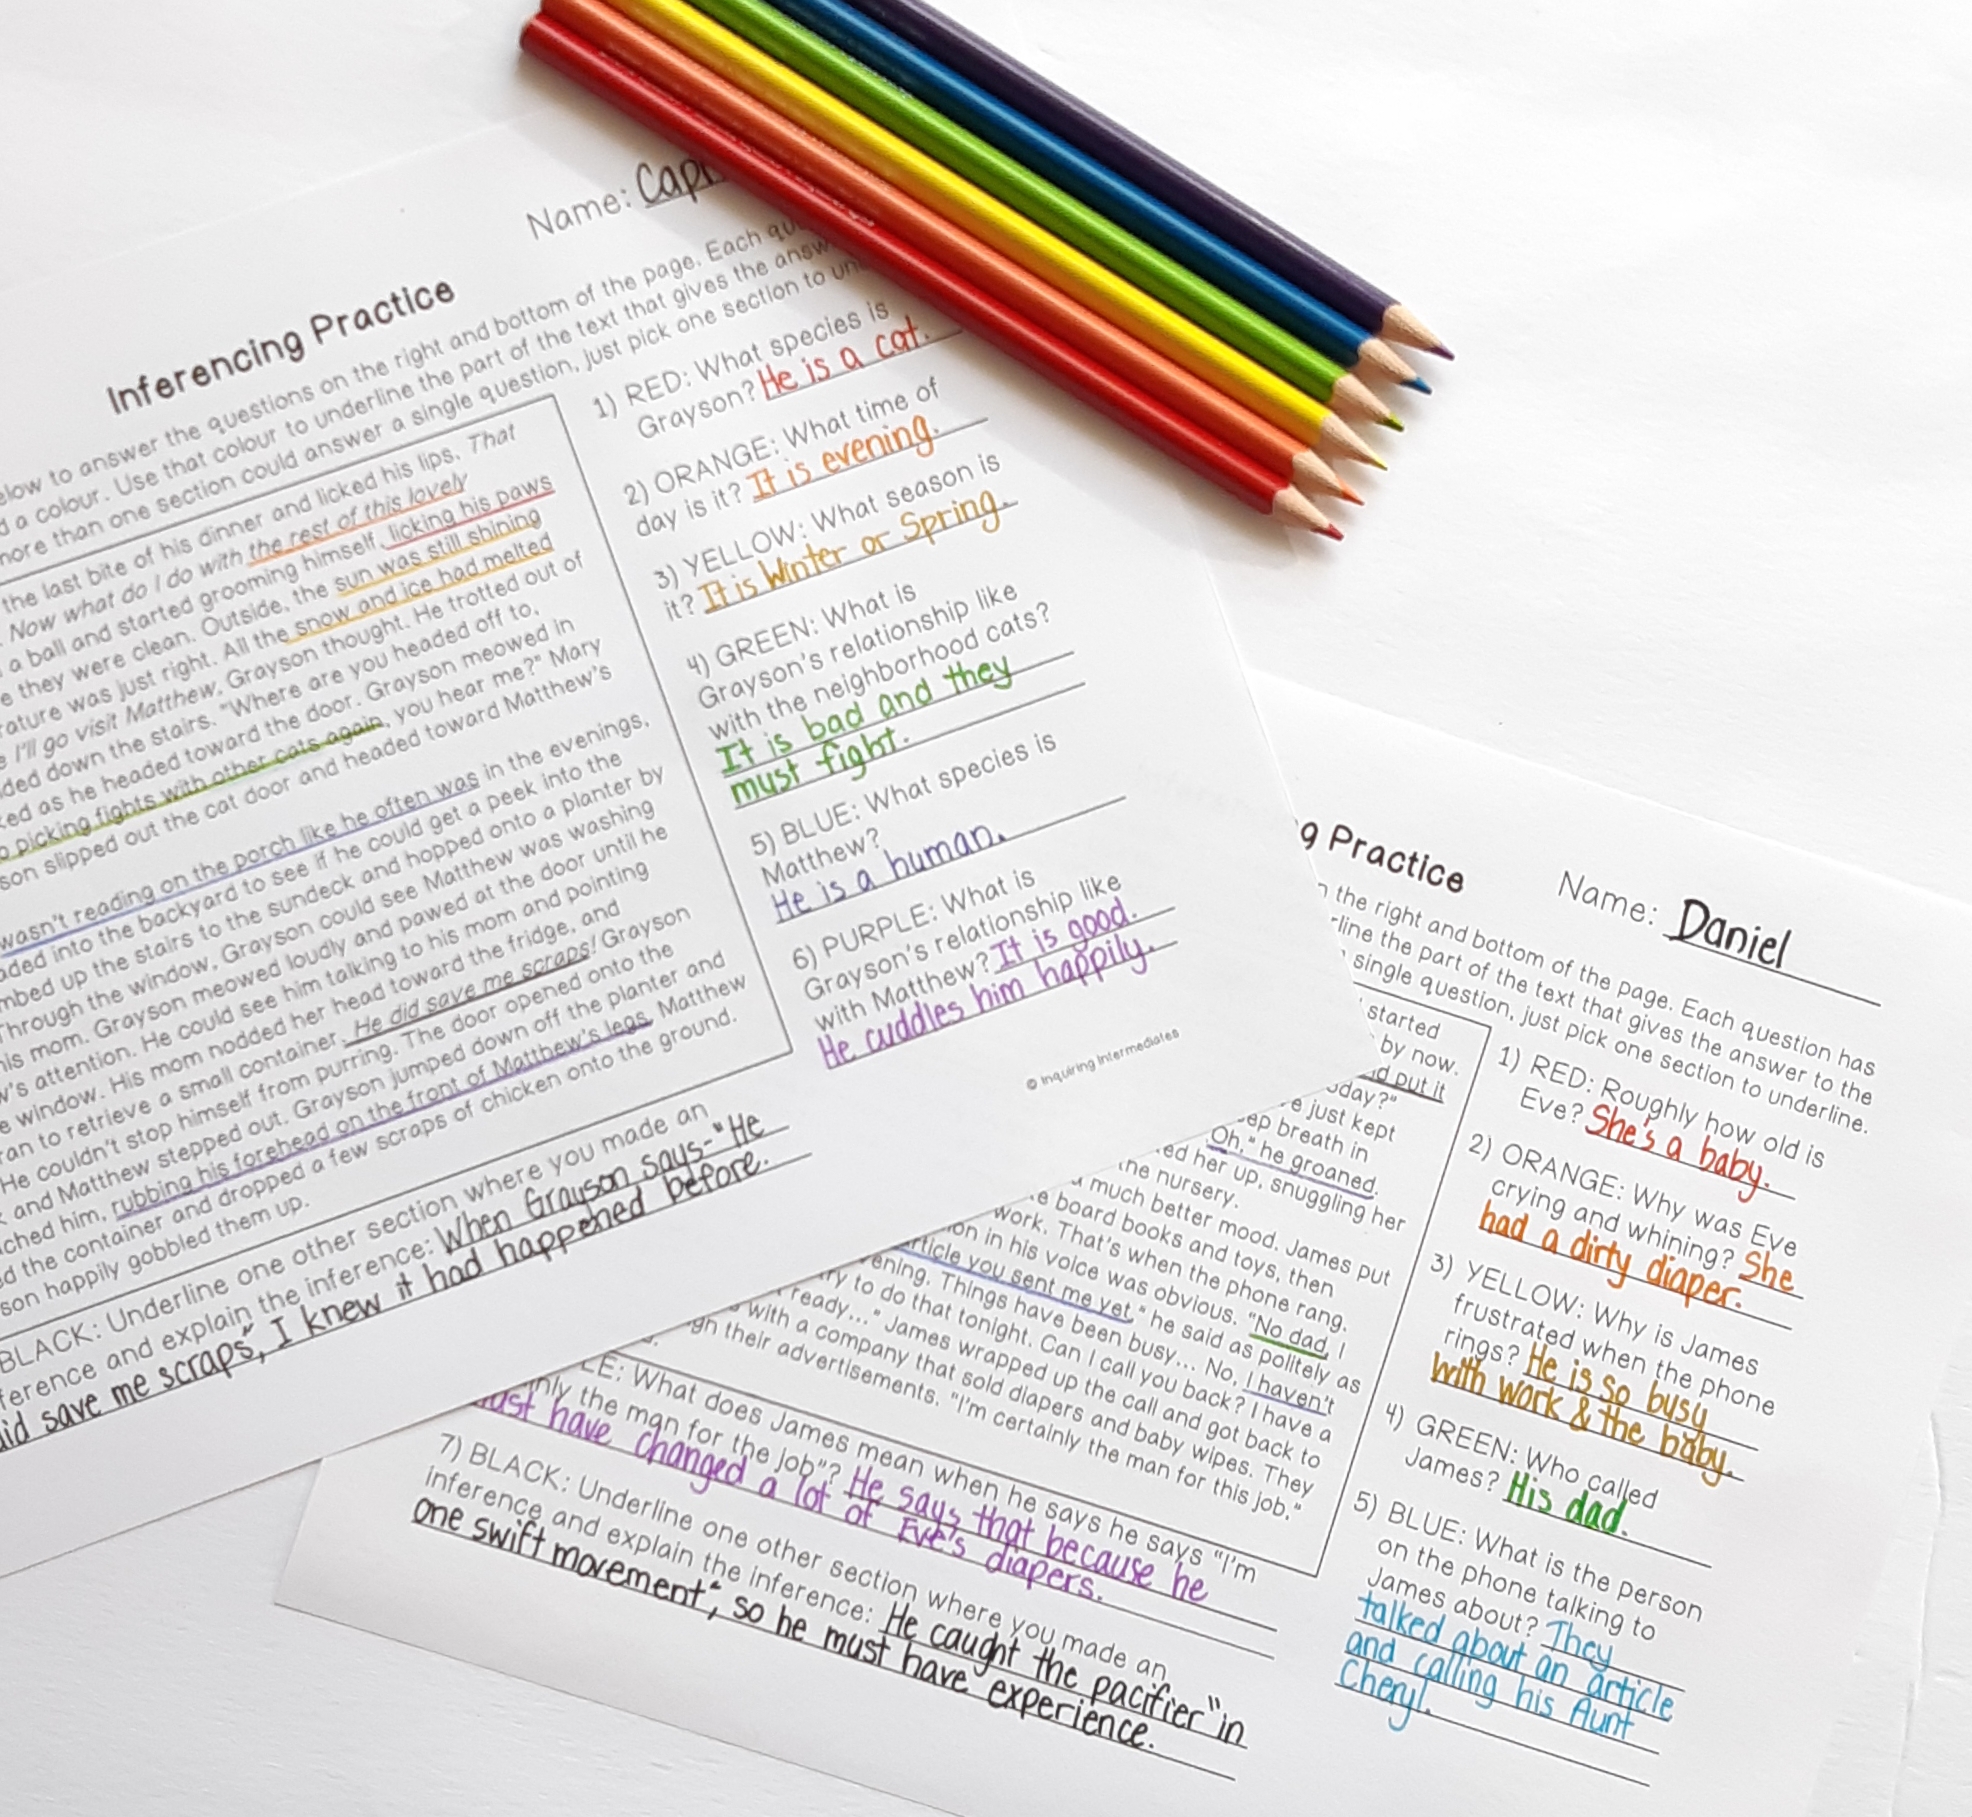 Name: Cap
Inferencing Practice
elow to answer the questions on the right and bottom of the page. Each
d a colour. Use that colour to underline the part of the text that gives the
more than one section could answer a single question, just pick one section to
the last bite of his dinner and licked his lips. That
. Now what do I do with the rest of this lovely
a ball and started grooming himself, licking his paws
e they were clean. Outside, the sun was still shining
rature was just right. All the snow and ice had melted
e I'll go visit Matthew, Grayson thought. He trotted out of
ded down the stairs. "Where are you headed off to,
ked as he headed toward the door. Grayson meowed in
o picking fights with other cats again, you hear me?" Mary
son slipped out the cat door and headed toward Matthew's
wasn't reading on the porch like he often was in the evenings,
aded into the backyard to see if he could get a peek into the
mbed up the stairs to the sundeck and hopped onto a planter by
Through the window, Grayson could see Matthew was washing
his mom. Grayson meowed loudly and pawed at the door until he
w's attention. He could see him talking to his mom and pointing
e window. His mom nodded her head toward the fridge, and
ran to retrieve a small container. He did save me scraps! Grayson
He couldn't stop himself from purring. The door opened onto the
k and Matthew stepped out. Grayson jumped down off the planter and
ched him, rubbing his forehead on the front of Matthew's legs. Matthew
d the container and dropped a few scraps of chicken onto the ground.
son happily gobbled them up.
1) RED: What species is
Grayson? He is a cat.
2) ORANGE: What time of
day is it? It is evening.
3) YELLOW: What season is
it? It is Winter or Spring.
4) GREEN: What is
Grayson's relationship like
with the neighborhood cats?
It is bad and they
must fight.
5) BLUE: What species is
Matthew?
He is a human.
6) PURPLE: What is
Grayson's relationship like
with Matthew? It is good.
He cuddles him happily.
© Inquiring Intermediates
BLACK: Underline one other section where you made an
ference and explain the inference: When Grayson says-"He
did save me scraps", I knew it had happened before.
g Practice
Name: Daniel
n the right and bottom of the page. Each question has
rline the part of the text that gives the answer to the
single question, just pick one section to underline.
started
by now.
d put it
oday?"
e just kept
eep breath in
Oh," he groaned.
ed her up, snuggling her
the nursery.
a much better mood. James put
e board books and toys, then
work. That's when the phone rang.
on in his voice was obvious. "No dad, I
article you sent me yet," he said as politely as
ening. Things have been busy... No, I haven't
ry to do that tonight. Can I call you back? I have a
ready..." James wrapped up the call and got back to
with a company that sold diapers and baby wipes. They
gh their advertisements. "I'm certainly the man for this job."
1) RED: Roughly how old is
Eve? She's a baby.
2) ORANGE: Why was Eve
crying and whining? She
had a dirty diaper.
3) YELLOW: Why is James
frustrated when the phone
rings? He is so busy
with work & the baby.
4) GREEN: Who called
James? His dad.
5) BLUE: What is the person
on the phone talking to
James about? They
talked about an article
and calling his Aunt
Cheryl.
LE: What does James mean when he says he says "I'm
inly the man for the job"? He says that because he
must have changed a lot of Eve's diapers.
7) BLACK: Underline one other section where you made an
inference and explain the inference: He caught the pacifier "in
one swift movement", so he must have experience.